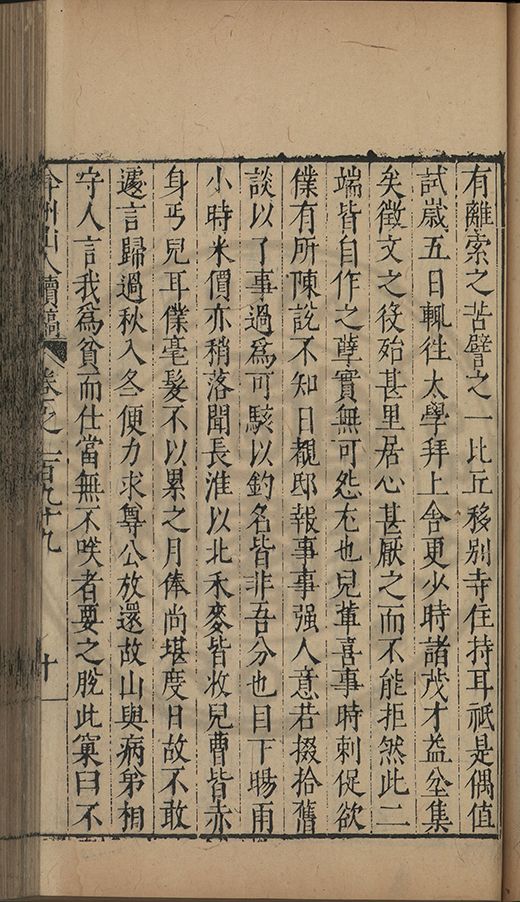 有離索之苦譬之一比丘移别寺住持耳祇是偶值
試嵗五日輒徃太學拜上舍更少時諸茂才益坌集
矣徵文之役殆甚里居心甚厭之而不能拒然此二
端皆自作之孽實無可怨尤也兒軰喜事時剌促欲
僕有所陳説不知日覩邸報事事强人意若掇拾舊
談以了事過爲可駭以釣名皆非吾分也目下賜雨
小時米價亦稍落聞長淮以北禾麥皆收兒曹皆赤
身丐兒耳僕毫髮不以累之月俸尚堪度日故不敢
遽言歸過秋入冬便力求尊公放還故山與病弟相
守人言我爲貧而仕當無不唉者要之脫此窠臼不
弇州山人續稿 卷之一百九十九 十